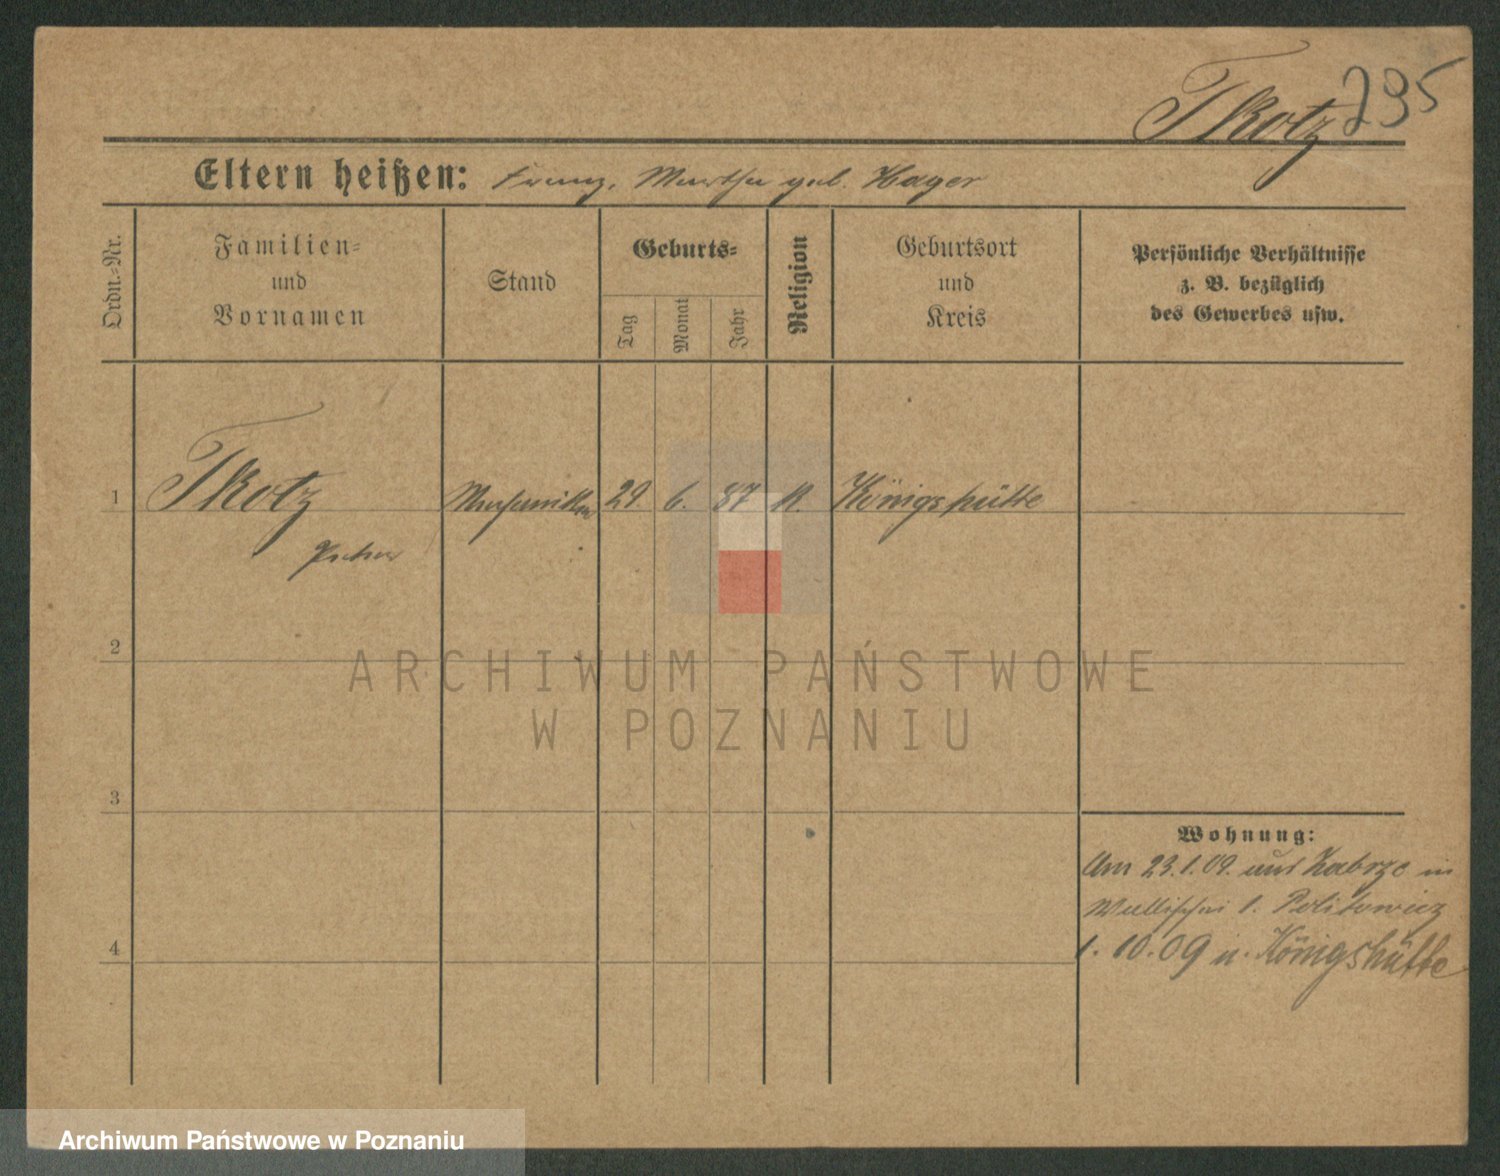 Tkotz 295
Eltern heißen: Franz, Martha geb. Hager
Ordn.-Nr.
Familien-
und
Vornamen
Stand
Geburts-
Tag
Monat
Jahr
Religion
Geburtsort
und
Kreis
Persönliche Verhältnisse
z. B. bezüglich
des Gewerbes usw.
1 Tkotz Mechaniker 29. 6. 87 K. Königshütte
Peter
2
ARCHIWUM PAŃSTWOWE
W POZNANIU
3
Wohnung:
Am 23.1.09. aus Zabrze in
Wallischei 1. Politowicz
4
1.10.09 n. Königshütte
Archiwum Państwowe w Poznaniu